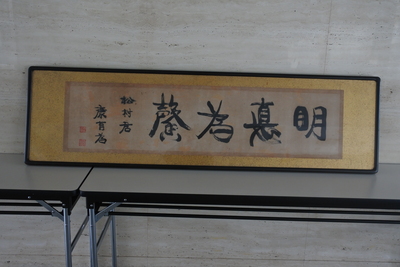 明悳為馨
松村君
康有為